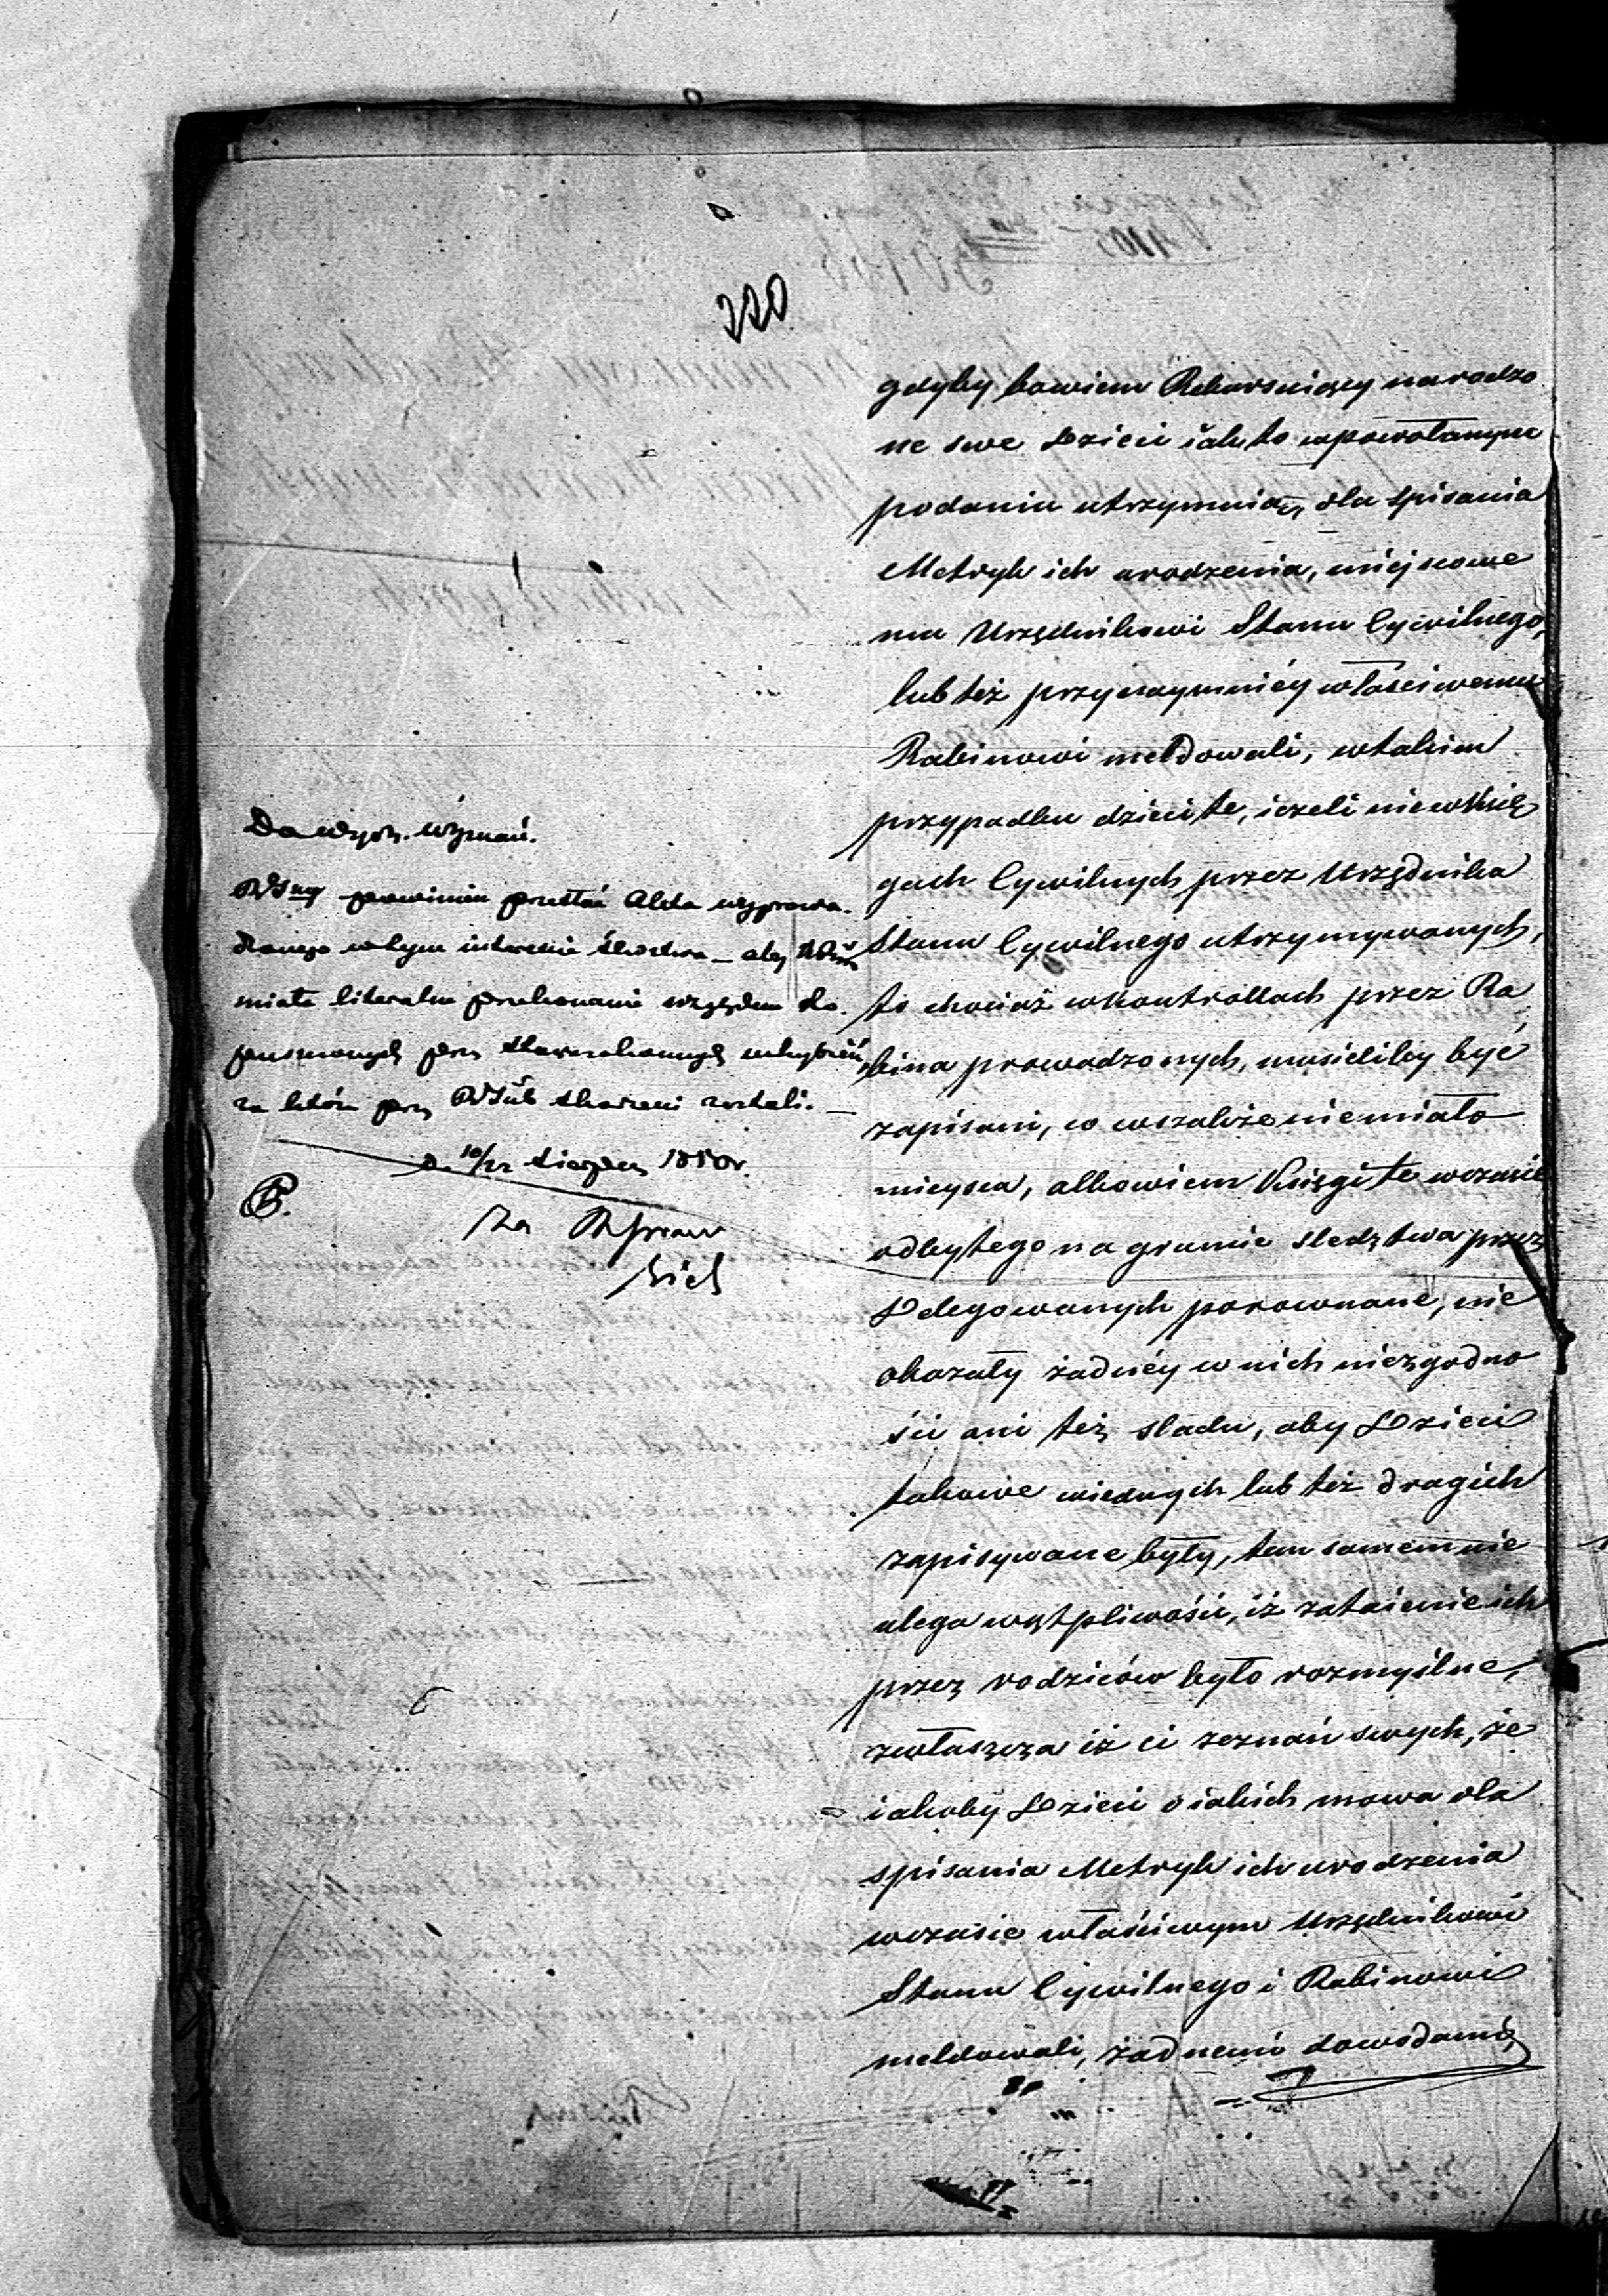 220
gdyby bowiem Rekursuiący narodzo
ne swe Dzieci iak to wpowołanym
podaniu utrzymuią, dla spisania
Metryk ich urodzenia, miejscowe
mu Urzędnikowi Stanu Cywilnego,
lub też przynaymniéy właściwemu
Rabinowi meldowali, wtakim
przypadku dzieci te, ieżeli niewksię
gach Cywilnych przez Urzędnika
Stanu Cywilnego utrzymywanych,
to chociaż wkontrollach przez Ra
bina prowadzonych, musieliby być
zapisani, co wszakże niemiało
mieysca, albowiem Księgi te wczasie
odbytego na gruncie sledztwa przez
Delegowanych porownane, nie
okazały żadnéy w nich niezgodno
ści ani też sladu, aby Dzieci
takowe wiednych lub też drugich
zapisywane były, tem samem nie
ulega wątpliwości, iż zataienie ich
przez rodziców było rozmyślne,
zwłaszcza iż ci zeznań swych, że
iakoby Dzieci o iakich mowa dla
spisania Metryk ich urodzenia
wczasie właściwym Urzędnikowi
Stanu Cywilnego i Rabinowi
meldowali, żadnemi dowodami
Do Wydz. Wyznań.
powinien przesłać Akta wyprowa.
dzonego wtym interesie śledztwa – aby
miała literalne przekonanie względem do.
puszczonych przez Starozakonnych uchybień,
za które przez skazani zostali. –
d. 10/22 Stycznia 1850 r.
Za